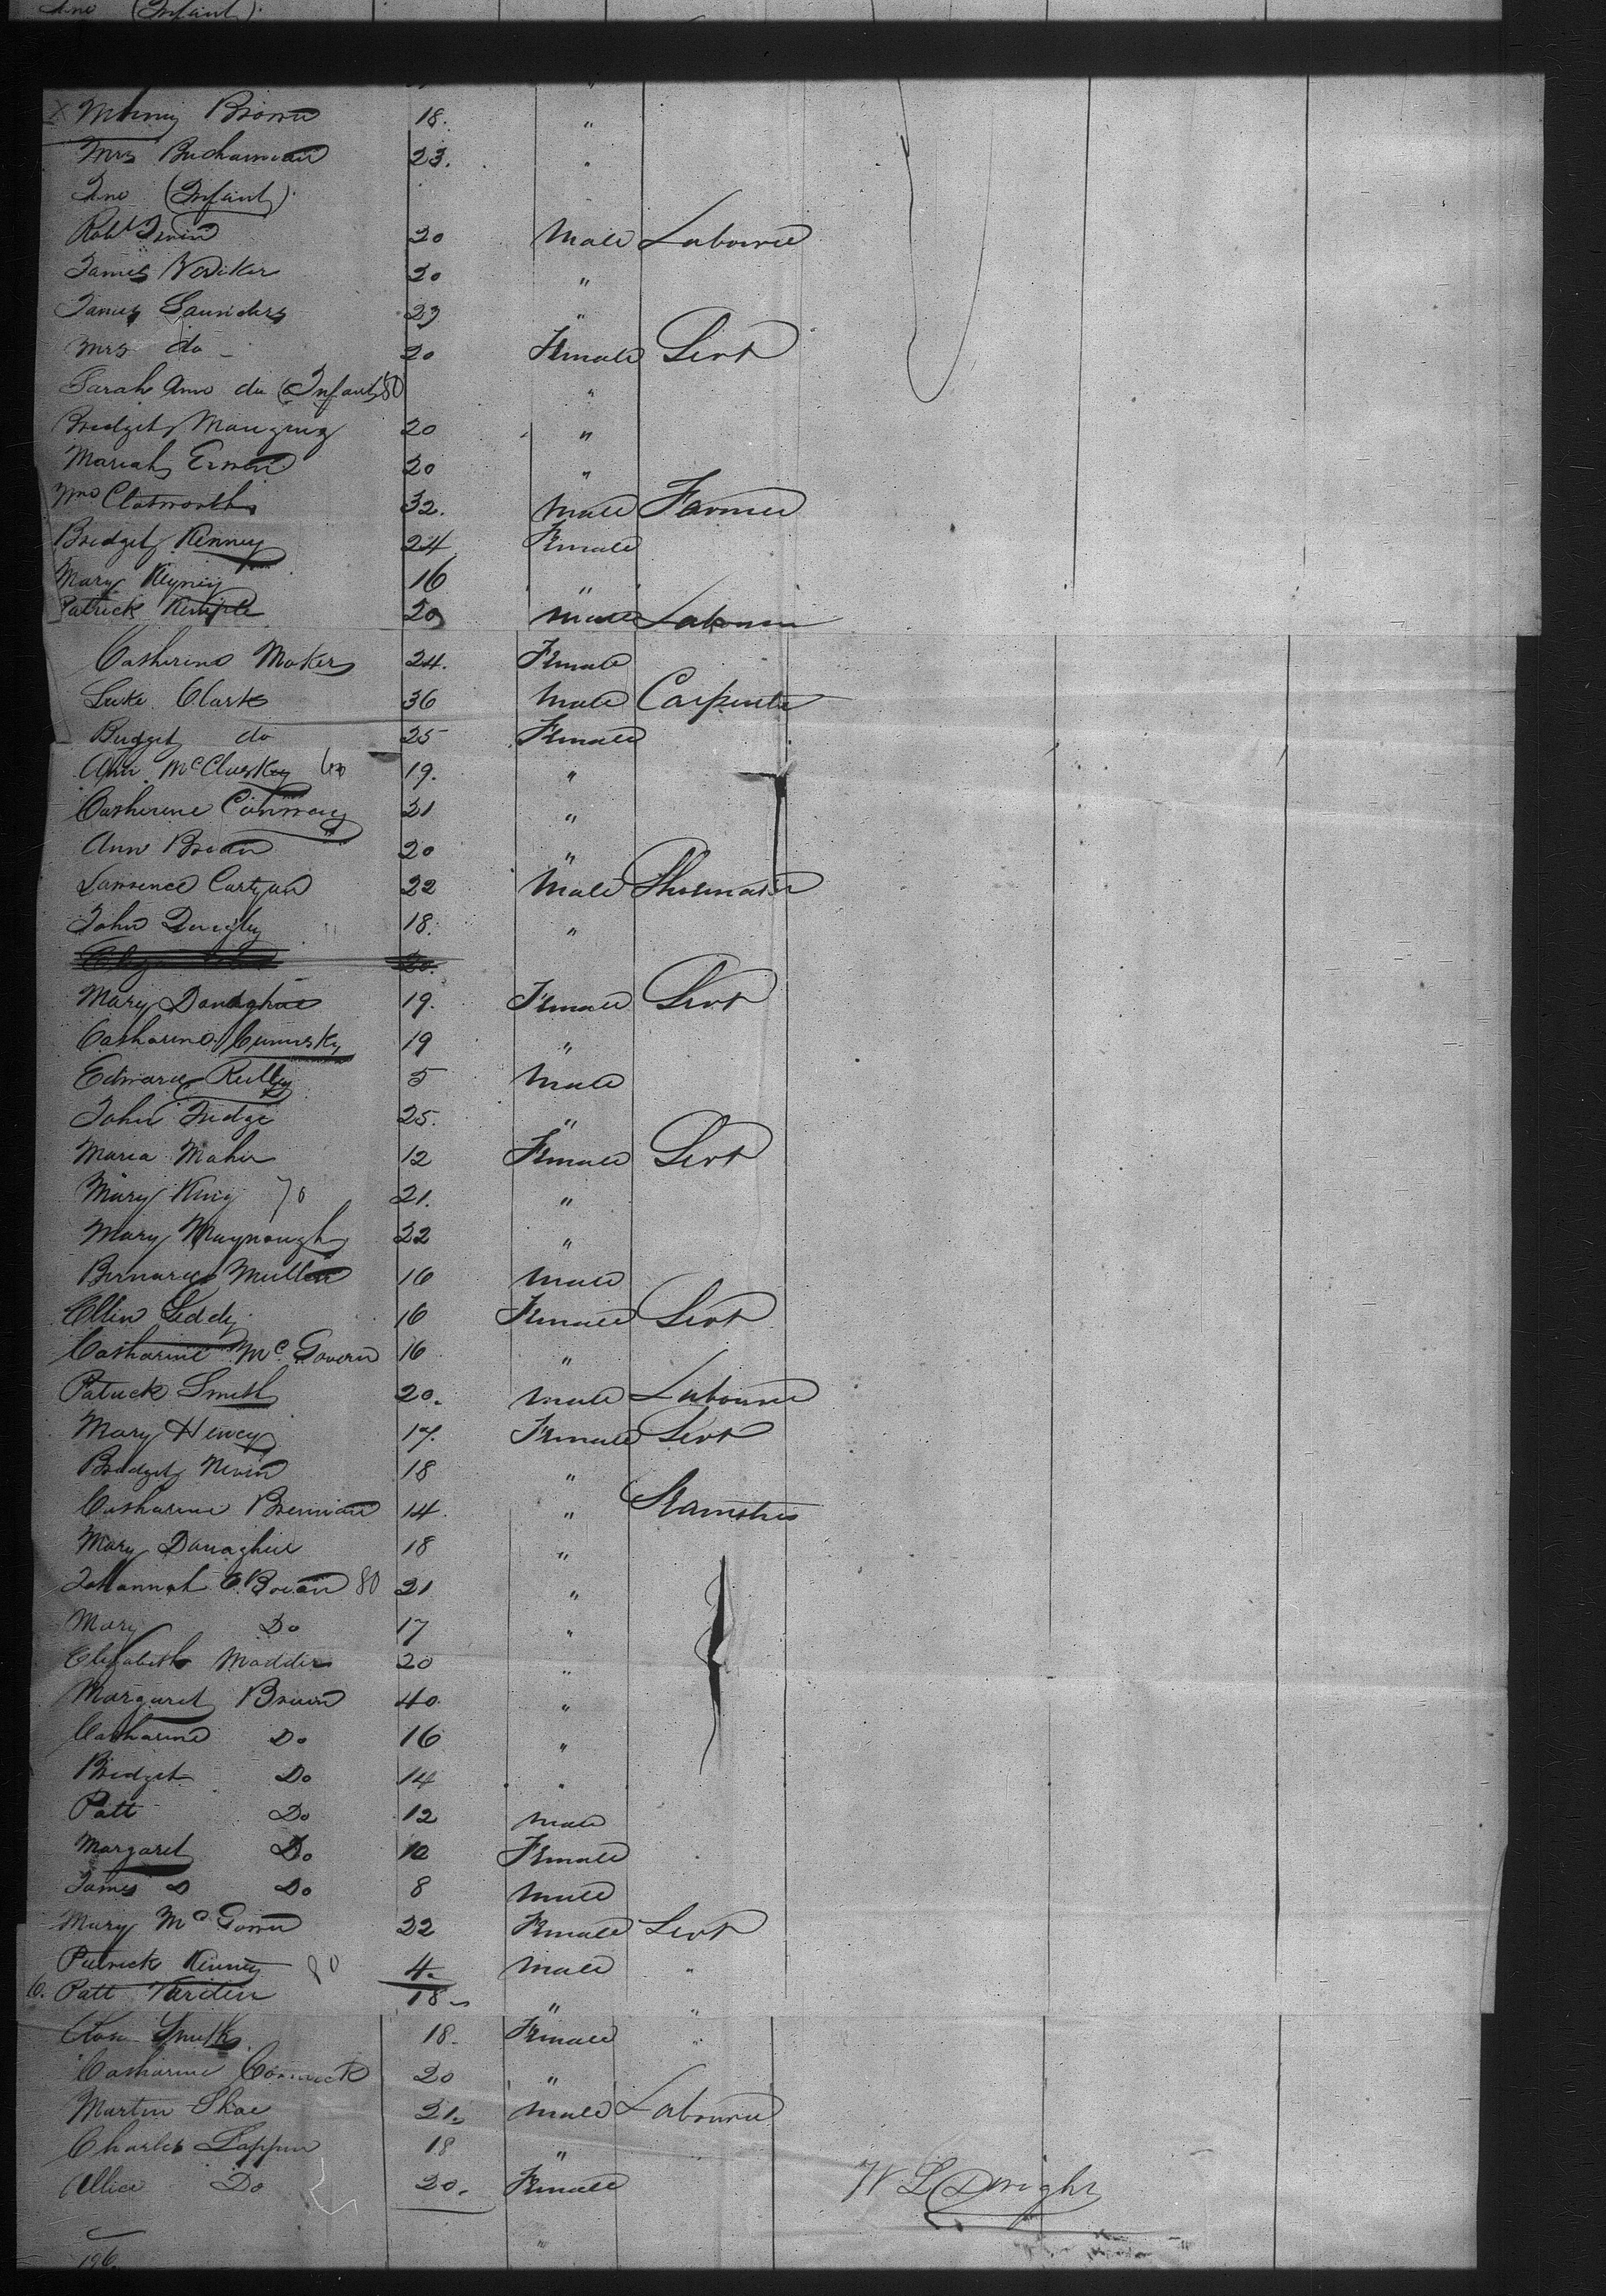 Jno (Infant).
Brown 18. "
Mrs Buchannan 23. "
Jno (Infant).
Robt Irwin 20 Male Labourer
James 20 "
James Saunders 23 "
Mrs do 20 Female Servt
Sarah Ann do (Infant) 50 "
Bridget 20 "
Mariah Erwin 20 "
Wm Clatworthy 32. Male Farmer
Bridget Kenney 24 Female
Mary 16 "
Patrick Kemple 20 Male Labourer
Catherine 24. Female
Luke Clark 36 Male Carpenter
Bridget do 25 Female
Ann McCluskey 60 19. "
Catherine Conway 21 "
Ann Brean 20 "
Lawrence Cartyan 22 Male Shoemaker
John Quigley 18. "
Mary Donaghue 19. Female Servt
Catharine Cumisky 19 "
Edward Reilly 5 Male
John Fudge 25. "
Maria Maher 12 Female Servt
Mary King 70 21. "
Mary Maynough 22 "
Bernard Mullen 16 Male
Ellen Leddy 16 Female Servt
Catharine McGovern 16 "
Patrick Smith 20. Male Labourer
Mary Hency 17. Female Servt
Bridget Nevin 18 "
Catharine Brennan 14 " Seamstress
Mary Donaghue 18 "
Johannah O'Brian 80 21 "
Mary Do 17 "
Elizabeth Madden 20 "
Margaret Bruin 40 "
Catharine Do 16 "
Bridget Do 14 "
Patt Do 12 Male
Margaret Do 10 Female
James D Do 8 Male
Mary McGowen 22 Female Servt
Patrick Kenney 90 4. Male "
Patt 18 " "
Smith 18. Female "
Catharine Cormack 20 "
Martin Shae 21. Male Labourer
Charles Lappin 18 "
Allice Do 20. Female
W L Dwight
"
196.